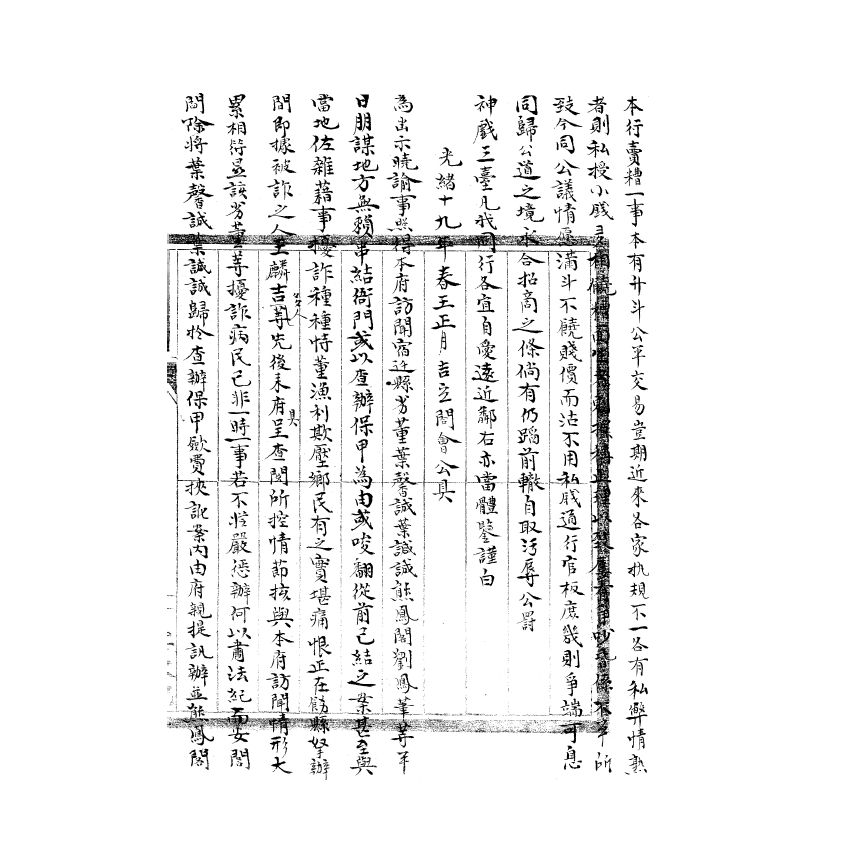 本行賣糟一事本有升斗公平交易豈期近來各家執規不一各有私弊情熟
者則私授小戔
致今同公議情愿滿斗不饒賤價而沽不用私戔通行官板庶幾則爭端可息
同歸公道之境永合招商之條倘有仍蹈前轍自取污辱公罰
神戲三臺凡我同行各宜自愛遠近鄰右亦當體鍳謹白
光緒十九年春王正月吉立閤會公具
為出示曉諭事照得本府訪聞宿迁縣劣董葉馨誠葉誠誠熊鳳閣劉鳳華等平
日朋謀地方無賴串結衙門或以查辦保甲為由或唆翻從前已結之案甚至與
當地佐雜藉事擾詐種種恃董漁利欺壓鄉民有之實堪痛恨正在飭縣拏辦
間即據被詐之人王麟吉等先後來府呈查閱所控情節核與本府訪聞情形大
累相符显該劣董等擾詐病民已非一時一事若不從嚴懲辦何以肅法紀而安閭
閻除將葉馨誠葉誠誠歸於查辦保甲歛費挾訛案內由府親提訊辦並熊鳳閣